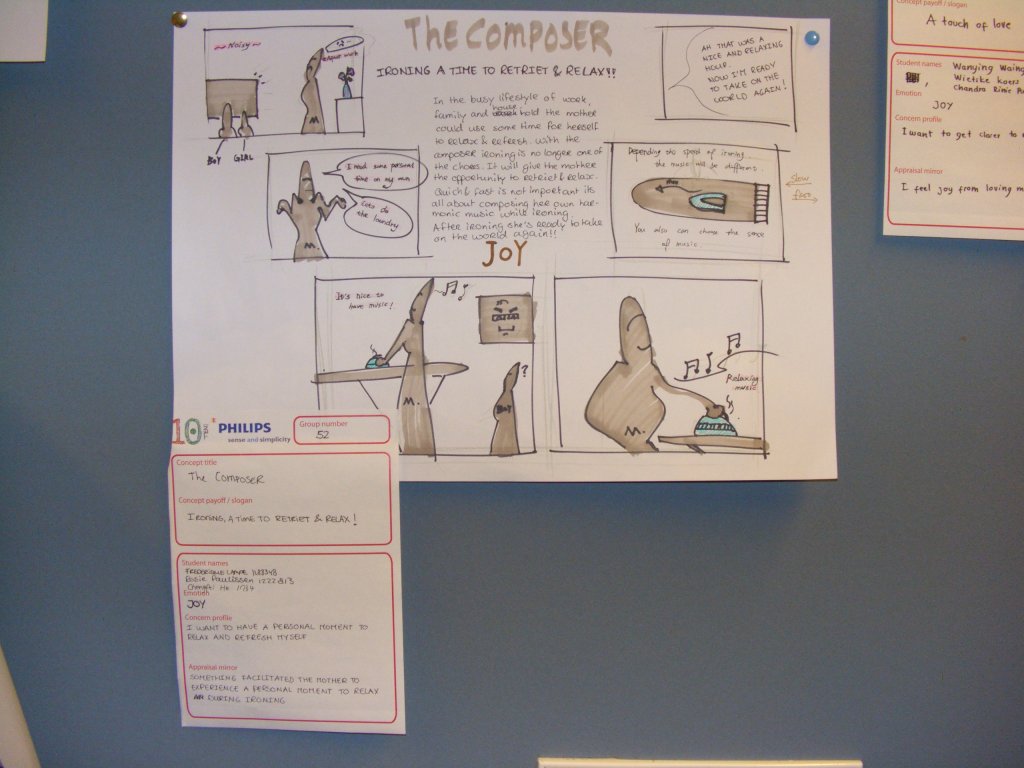 The Composer
IRONING A TIME TO RETRIET & RELAX!!
~ Noisy ~
BOY GIRL
In the busy lifestyle of work,
family and household the mother
could use some time for herself
to relax & refresh. With the
composer ironing is no longer one of
the chores. It will give the mother
the opportunity to retriet & relax.
Quick & fast is not important its
all about composing her own har-
monic music while ironing.
After ironing she's ready to take
on the world again!!
JOY
AH THAT WAS A
NICE AND RELAXING
HOUR.
NOW I'M READY
TO TAKE ON THE
WORLD AGAIN!
I need some personal
time on my own
Lets do
the laundry
M.
Depending the speed of ironing
the music will be different.
You also can choose the
of music
slow
fast
It's nice to
have music!
M.
BOY
?
Relaxing
music
M.
10
PHILIPS
sense and simplicity
Group number
52
Concept title
The Composer
Concept payoff / slogan
IRONING, A TIME TO RETRIET & RELAX!
Student names
Rosie Paulissen 1222813
Emotion
JOY
Concern profile
I WANT TO HAVE A PERSONAL MOMENT TO
RELAX AND REFRESH MYSELF
Appraisal mirror
SOMETHING FACILITATED THE MOTHER TO
EXPERIENCE A PERSONAL MOMENT TO RELAX
DURING IRONING
Concept payoff / slogan
A touch of love
Student names
Wanying
Wietske Koers
Chandra
Emotion
JOY
Concern profile
I want to get closer to
Appraisal mirror
I feel joy from loving